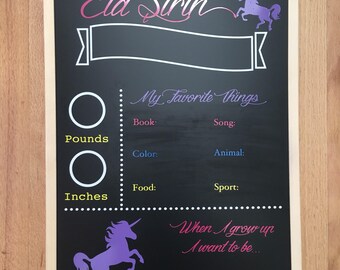 Ela Sirin
My Favorite Things
Book: Song:
Pounds
Color: Animal:
Inches
Food: Sport:
When I grow up
I want to be